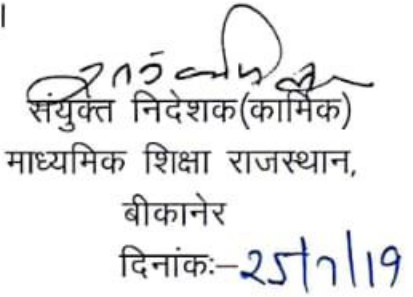 ।
संयुक्त निदेशक(कार्मिक)
माध्यमिक शिक्षा राजस्थान,
बीकानेर
दिनांकः–25/7/19